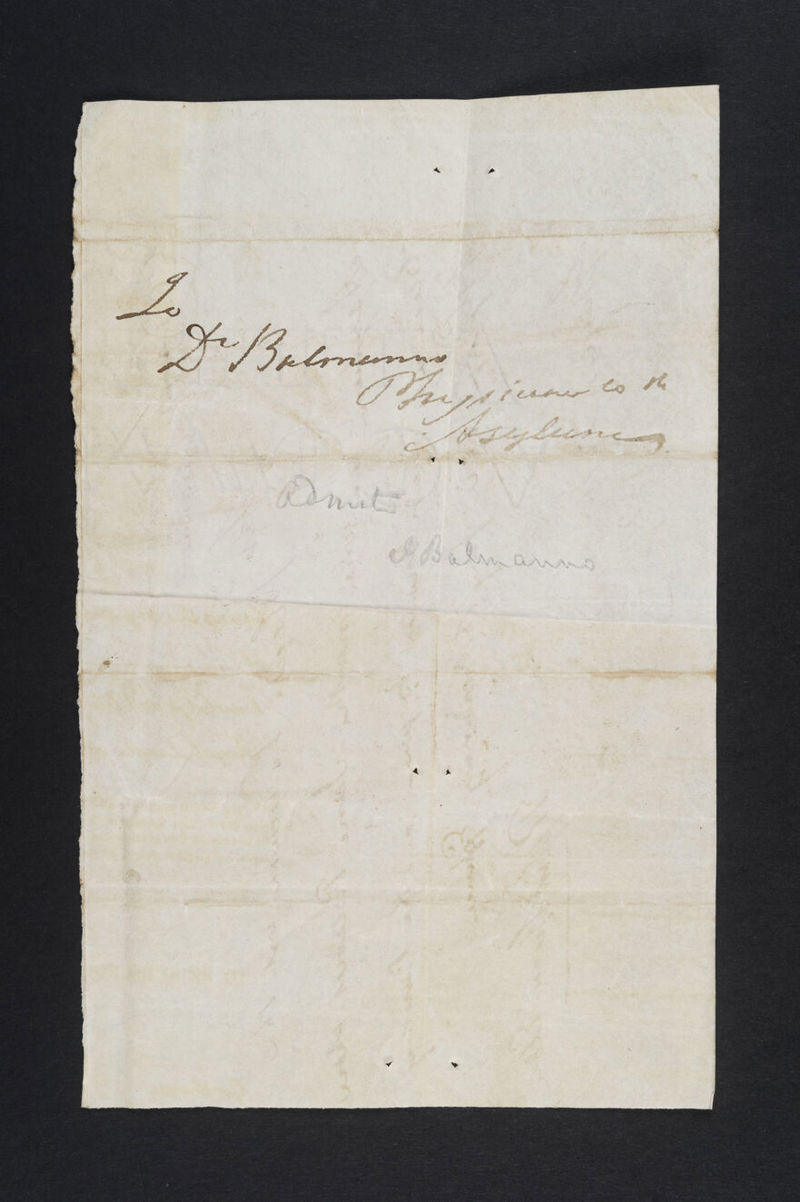 To
Dr Balmanno
Physician to th
Asylum
Admit
J Balmanno